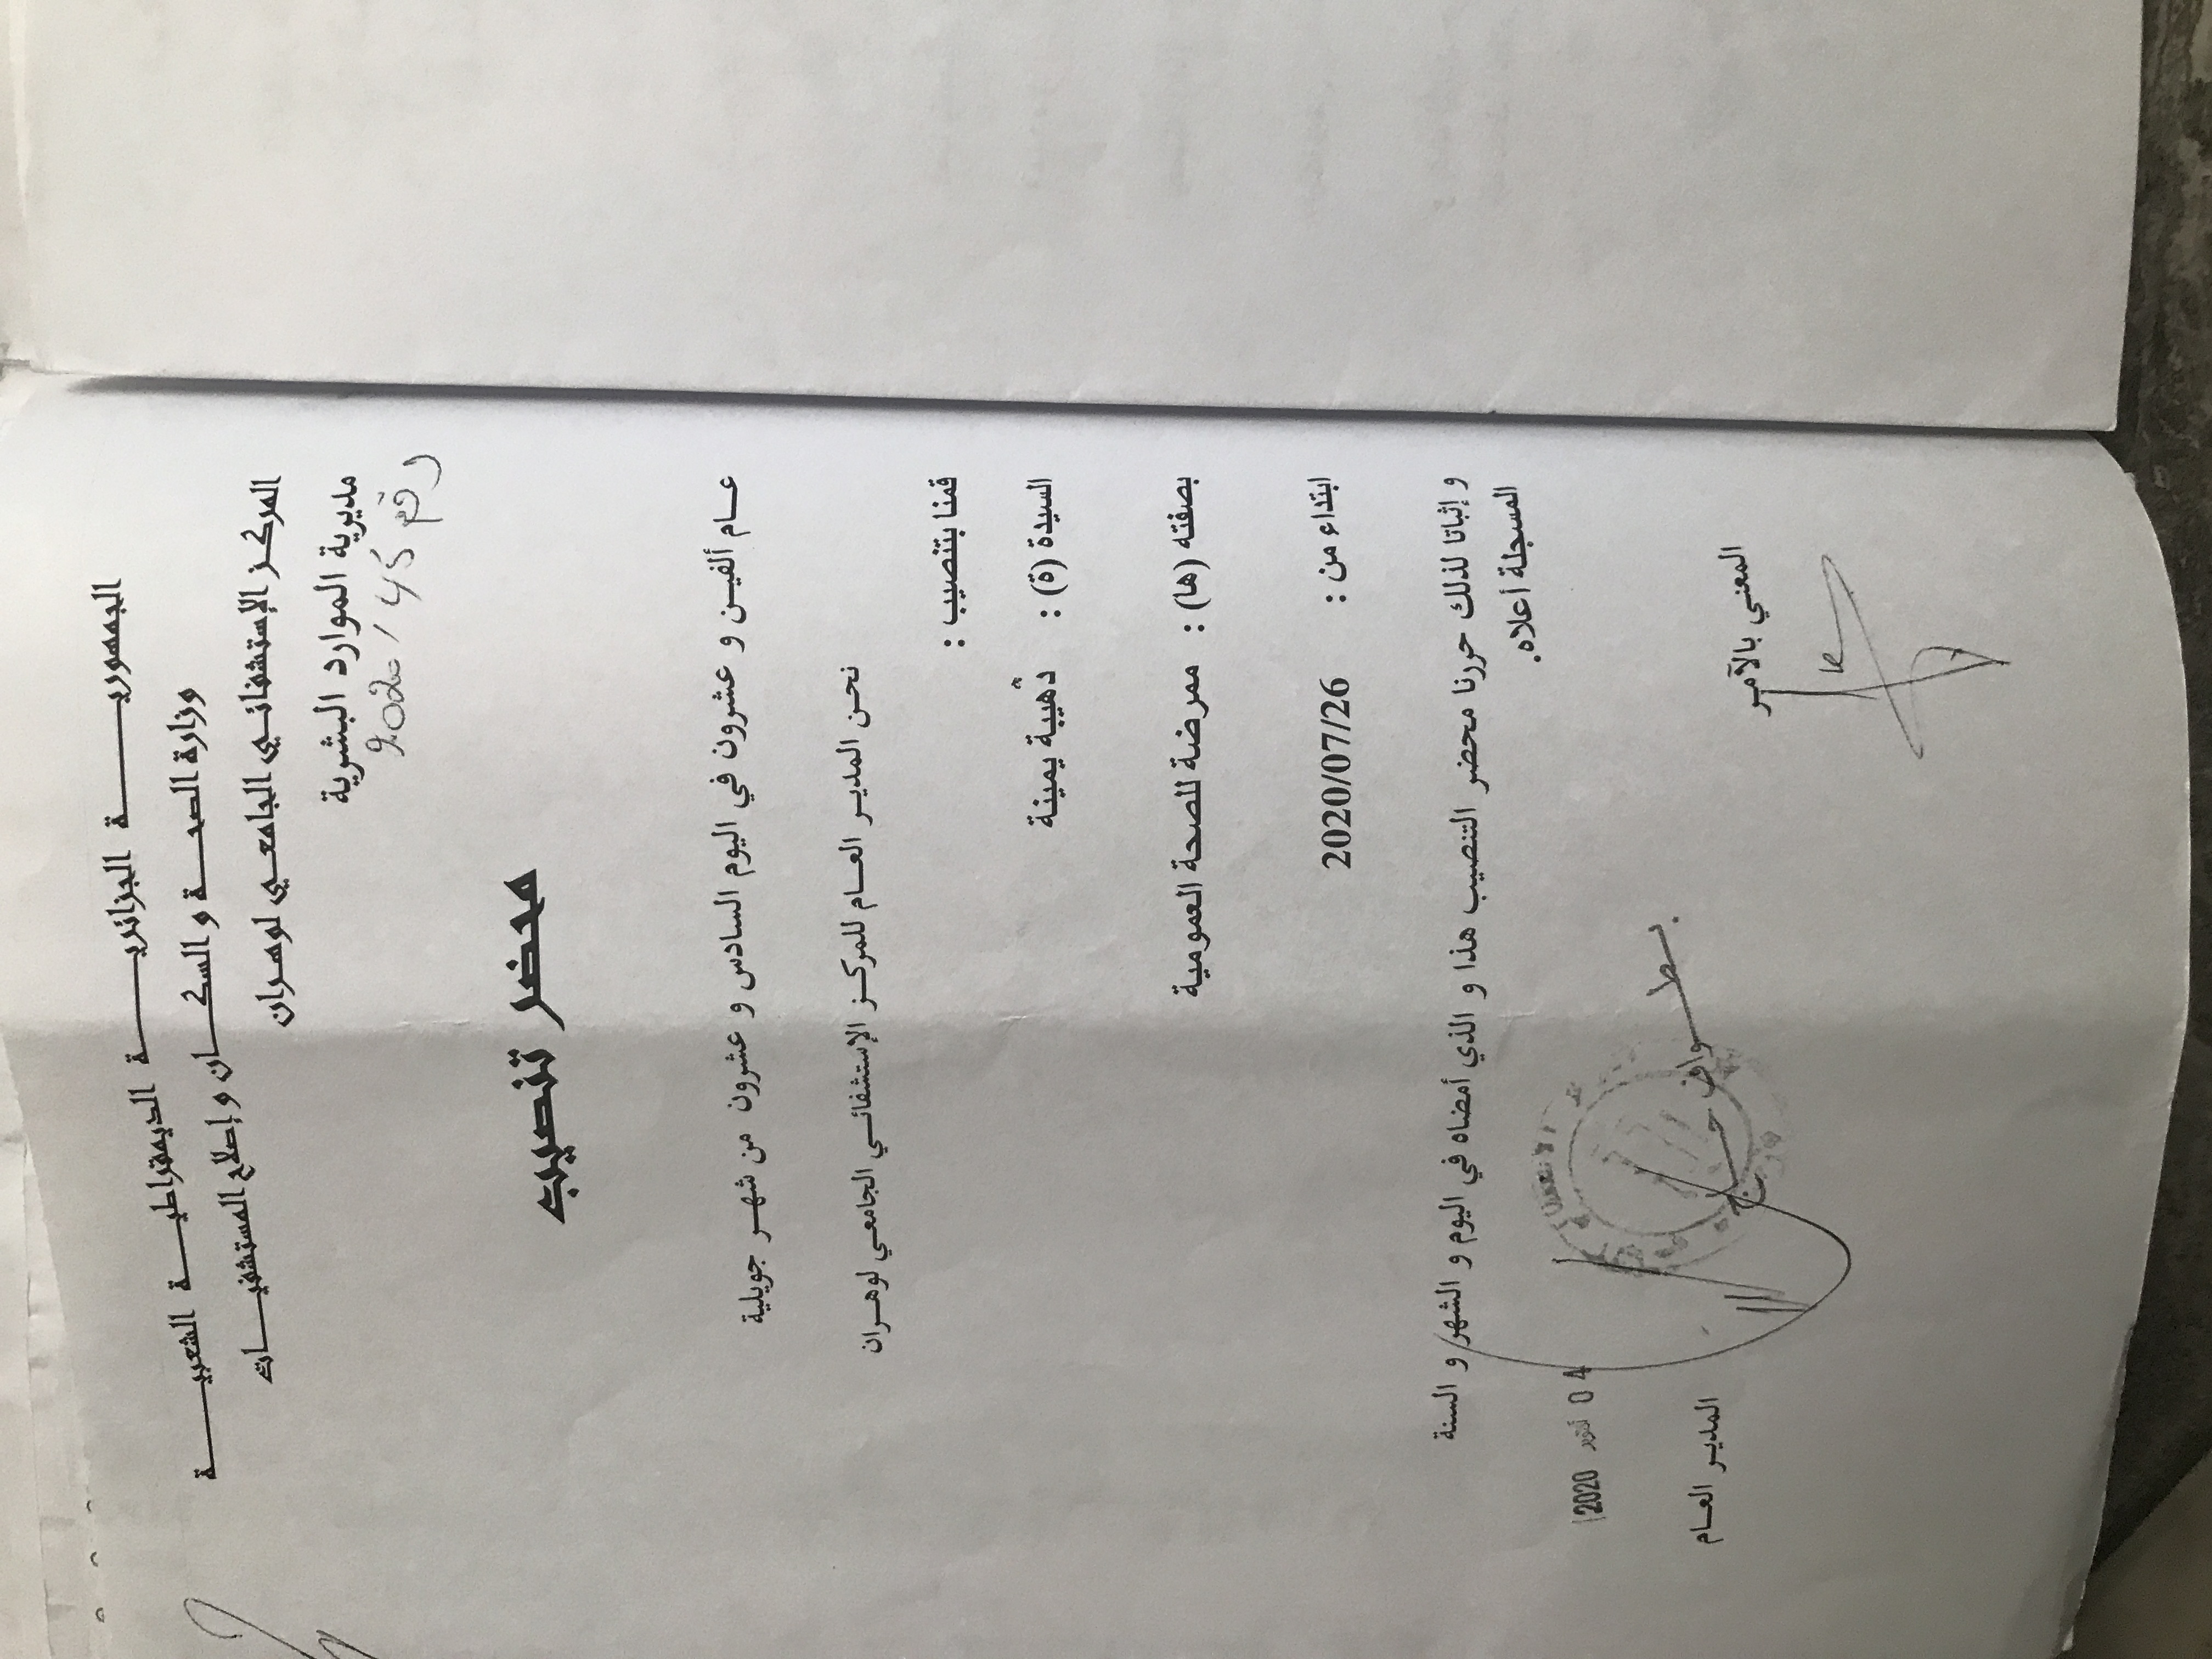 الجمهوريـــة الجزائريـــة الديمقراطيـــة الشعبيـــة
وزارة الصحـــة و السكـــان و إصلاح المستشفيـــات
المركـز الإستشفائـي الجامعـي لوهـران
مديرية الموارد البشرية
رقم 45 / 2020
محضر تنصيب
عـام ألفيـن و عشرون في اليوم السادس و عشرون من شهـر جويلية
نحـن المديـر العـام للمركـز الإستشفائـي الجامعـي لوهـران
قمنا بتنصيب :
السيدة (ة) : دهيبة يمينة
بصفته (ها) : ممرضة للصحة العمومية
ابتداء من : 2020/07/26
و إثباتا لذلك حررنا محضر التنصيب هذا و الذي أمضاه في اليوم و الشهر و السنة
المسجلة أعلاه.
04 2020
المعني بالآمـر
المديـر العـام